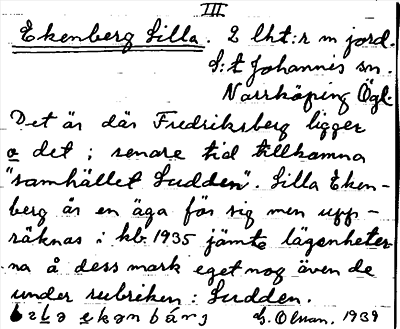 III
Ekenberg Lilla. 2 lht:r m jord.
S:t Johannis sn.
Norrköping Ögl.
Det är där Fredriksberg ligger
o det i senare tid tillkomna
"samhället Sudden". Lilla Eken-
berg är en äga för sig men upp-
räknas i kb. 1935 jämte lägenheter-
na å dess mark eget nog även de
under rubriken: Sudden.
G. Olson. 1939